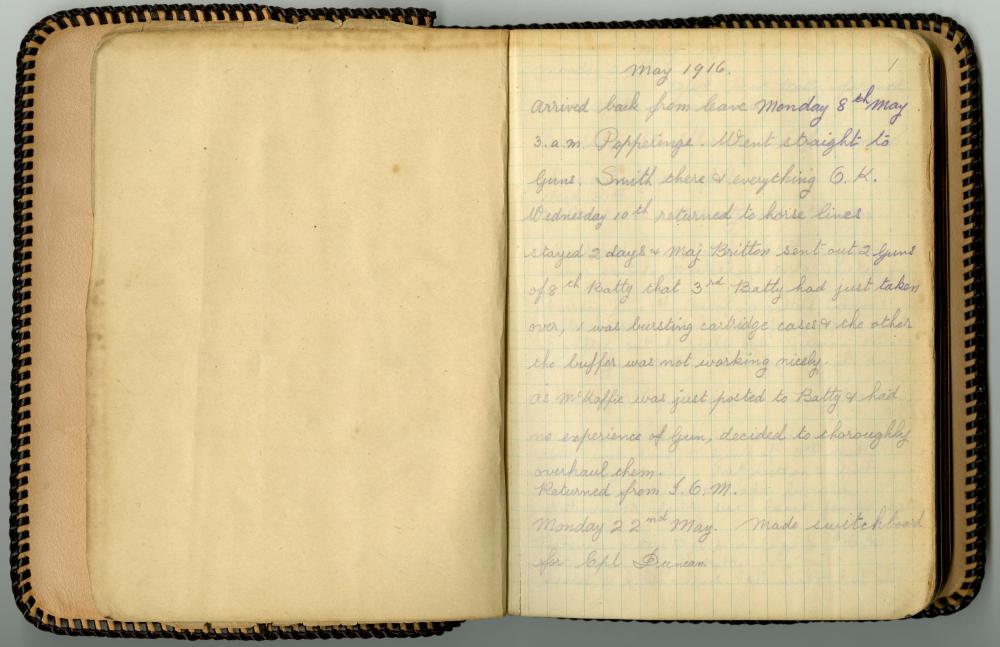 May 1916.
1
Arrived back from leave Monday 8th May
3.a.m. Popperinge. Went straight to
Guns. Smith there & everything O.K.
Wednesday 10th returned to horse lines
stayed 2 days & Maj Britton sent out 2 Guns
of 8th Batty that 3rd Batty had just taken
over, 1 was bursting cartridge cases & the other
the buffer was not working nicely.
As McHaffie was just posted to Batty & had
no experience of Gun, decided to thoroughly
overhaul them.
Returned from I.O.M.
Monday 22nd May. Made switchboard
for Cpl Duncan